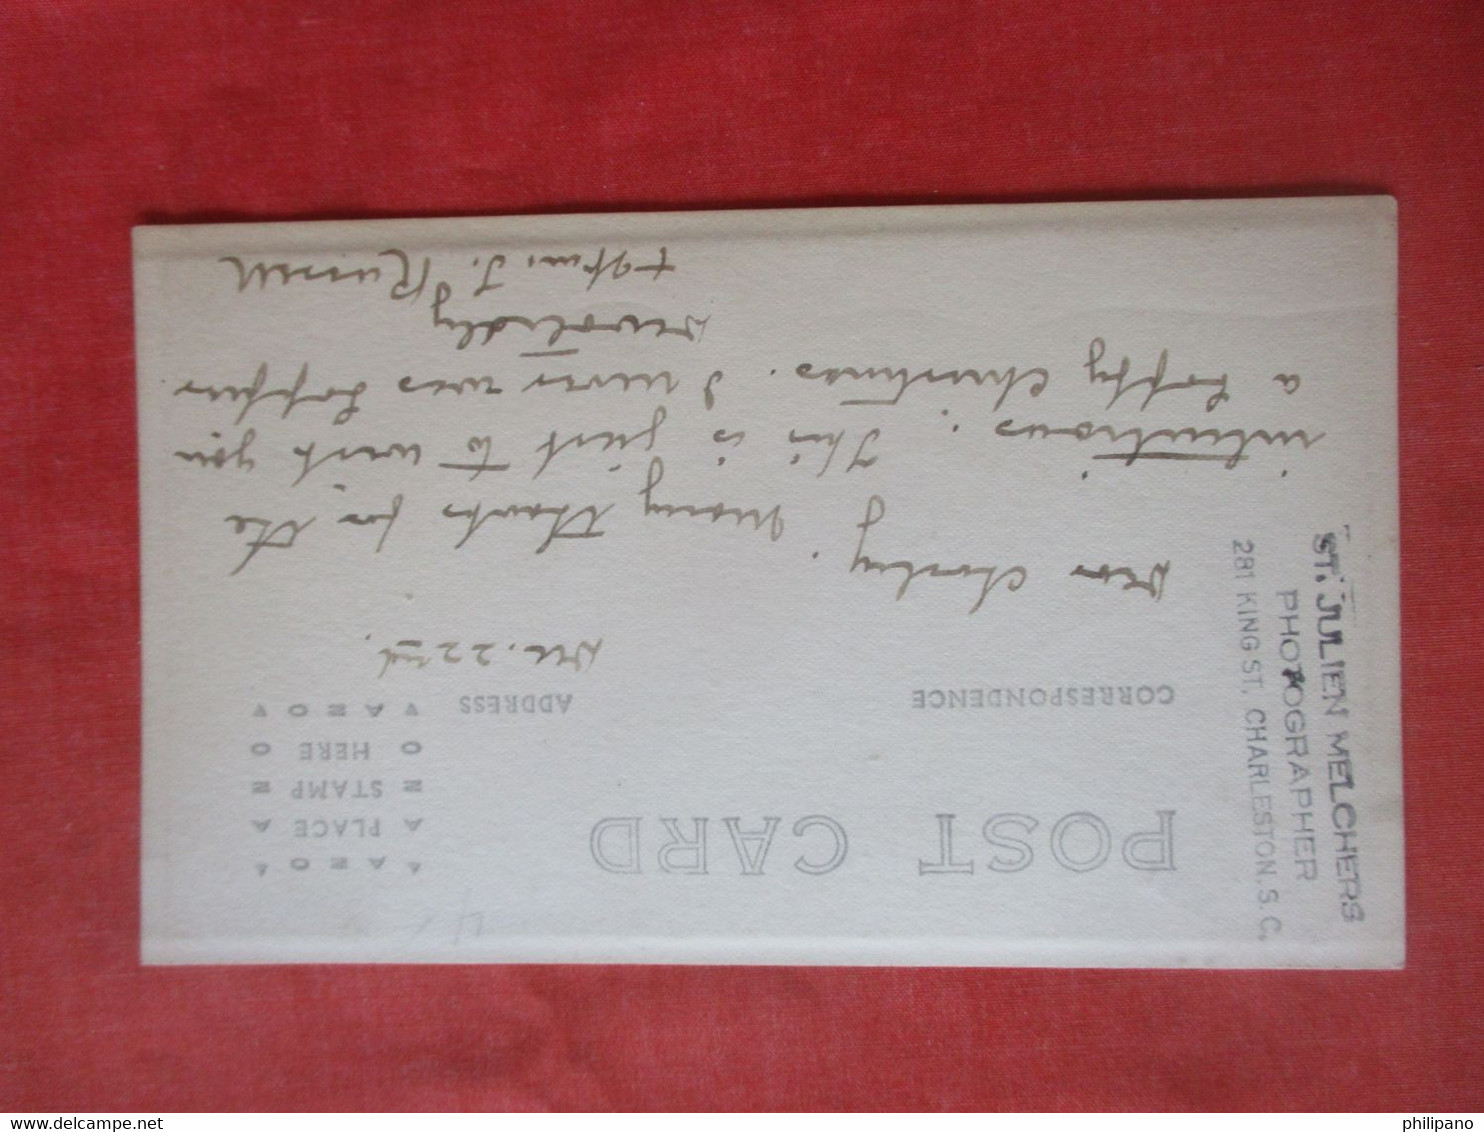 ST. JULIEN MELCHERS
PHOTOGRAPHER
281 KING ST. CHARLESTON. S. C.
POST CARD
CORRESPONDENCE
ADDRESS
AZO
PLACE
STAMP
HERE
AZO
Dec. 22nd.
Dear Charley. Many thanks for the
This is just to wish you
a happy Christmas. I never was happier
devotedly
J. Russell
www.delcampe.net
philipano